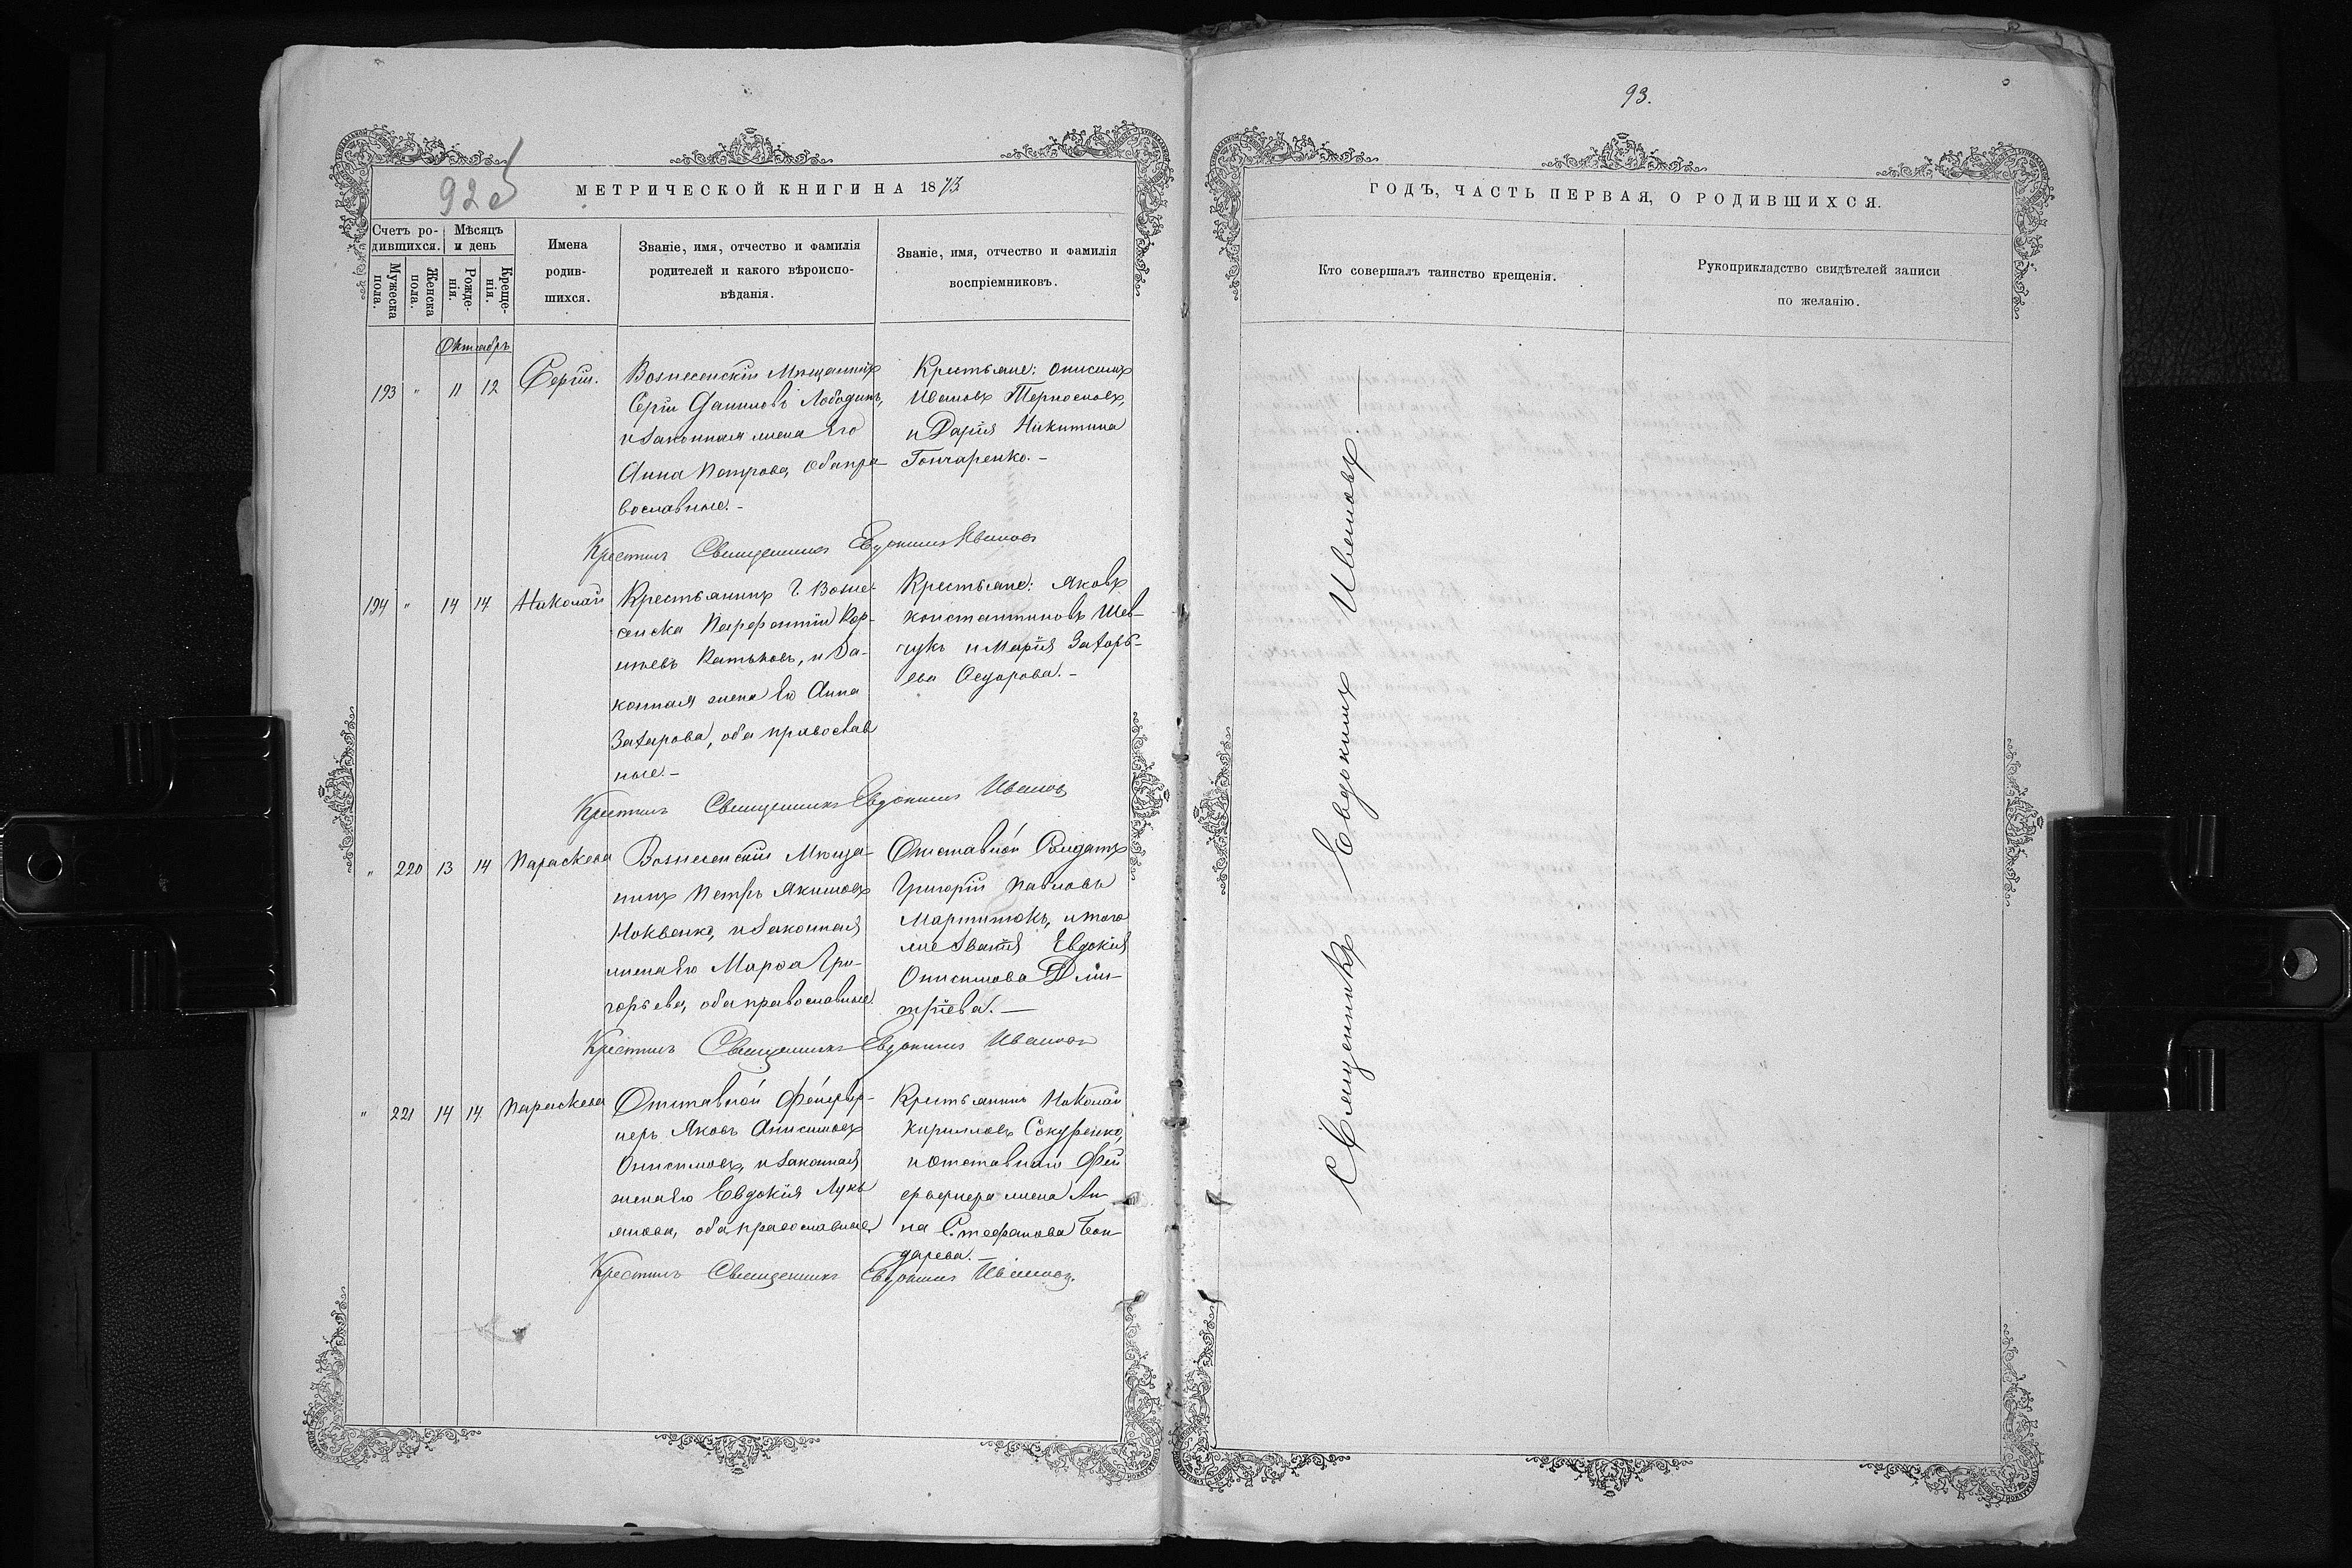 92 об
МЕТРИЧЕСКОЙ КНИГИ НА 1873
Счетъ ро-
дившихся.
Мѣсяцъ
и день
Мужеска
пола.
Женска
пола.
Рожде-
нія.
Креще-
нія.
Имена
родив-
шихся.
Званіе, имя, отчество и фамилія
родителей и какого вѣроиспо-
вѣданія.
Званіе, имя, отчество и фамилія
воспріемниковъ.
Октябрь
193 " 11 12 Сергій.
Вознесенскій Мѣщанинъ
Сергій Даниловъ Лободинъ,
и законная жена Его
Анна Петрова, оба пра-
вославные.-
Крестьяне: Онисимъ
Ивановъ Терновой,
и Дарія Никитина
Гончаренко.-
Крестилъ Священникъ Евдокимъ Ивановъ
194 " 14 14 Николай
Крестьянинъ г. Возне-
сенска Парфентій Кор-
нѣевъ Катьковъ, и за-
конная жена Его Анна
Захарова, оба православ
ные.-
Крестьяне: Яковъ
Константиновъ Шев-
чукъ и Марія Захарь-
ева Ѳедорова.-
Крестилъ Священникъ Евдокимъ Ивановъ
" 220 13 14 Параскева
Вознесенскій Мѣща-
нинъ Петръ Якимовъ
и законная
жена Его Марѳа Гри-
горьева, оба православные
Отставной Солдатъ
Григорій Павловъ
Мартинюкъ, и того
же званія Евдокія
Онисимова Дми-
тріева.-
Крестилъ Священникъ Евдокимъ Ивановъ
" 221 14 14 Параскева
Отставной Фейервер-
керъ Яковъ Анисимовъ
Онисимовъ, и законная
жена Его Евдокія Лукь
янова, оба православные
Крестьянинъ Николай
Кирилловъ Сокуренко,
и отставного Фей
ерверкера жена Ан-
на Стефанова Бон-
дарева.-
Крестилъ Священникъ Евдокимъ Ивановъ.
93.
ГОДЪ, ЧАСТЬ ПЕРВАЯ, О РОДИВШИХСЯ.
Кто совершалъ таинство крещенія.
Рукоприкладство свидѣтелей записи
по желанію.
Священникъ Евдокимъ Ивановъ.